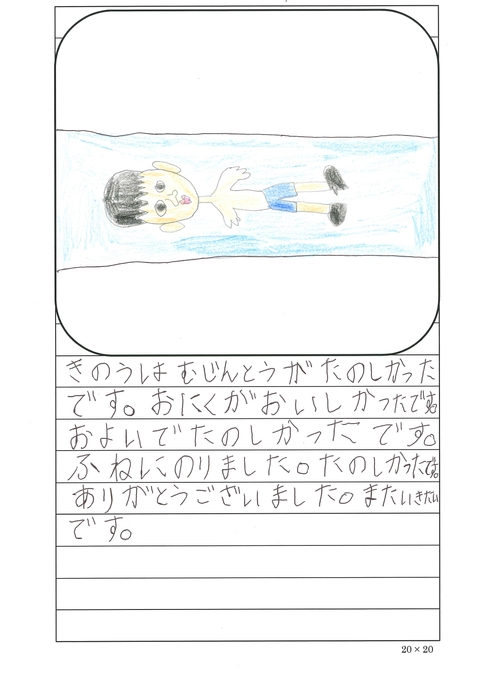 きのうはむじんとうがたのしかった
です。おにくがおいしかったです。
およいでたのしかったです。
ふねにのりました。たのしかったです。
ありがとうございました。またいきたい
です。
20×20